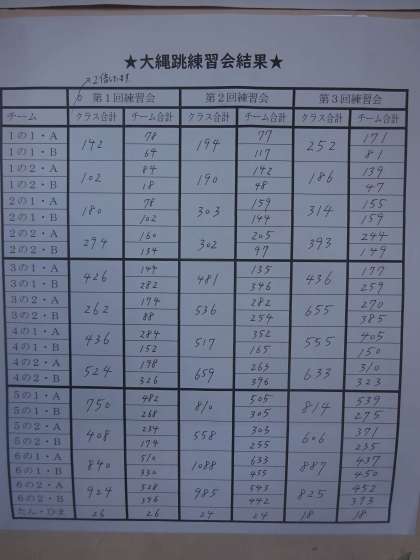 ★大縄跳練習会結果★
×2倍しています
第1回練習会 第2回練習会 第3回練習会
チーム クラス合計 チーム合計 クラス合計 チーム合計 クラス合計 チーム合計
1の1・A 142 78 194 77 252 171
1の1・B 64 117 81
1の2・A 102 84 190 142 186 139
1の2・B 18 48 47
2の1・A 180 78 303 159 314 155
2の1・B 102 144 159
2の2・A 294 160 302 205 393 244
2の2・B 134 97 149
3の1・A 426 144 481 135 436 177
3の1・B 282 346 259
3の2・A 262 174 536 282 655 270
3の2・B 88 254 385
4の1・A 436 284 517 352 555 405
4の1・B 152 165 150
4の2・A 524 198 659 263 633 310
4の2・B 326 396 323
5の1・A 750 482 810 505 814 539
5の1・B 268 305 275
5の2・A 408 234 558 303 606 371
5の2・B 174 255 235
6の1・A 840 510 1088 633 887 437
6の1・B 330 455 450
6の2・A 924 528 985 543 825 452
6の2・B 396 442 373
たん・ひま 26 26 24 24 18 18